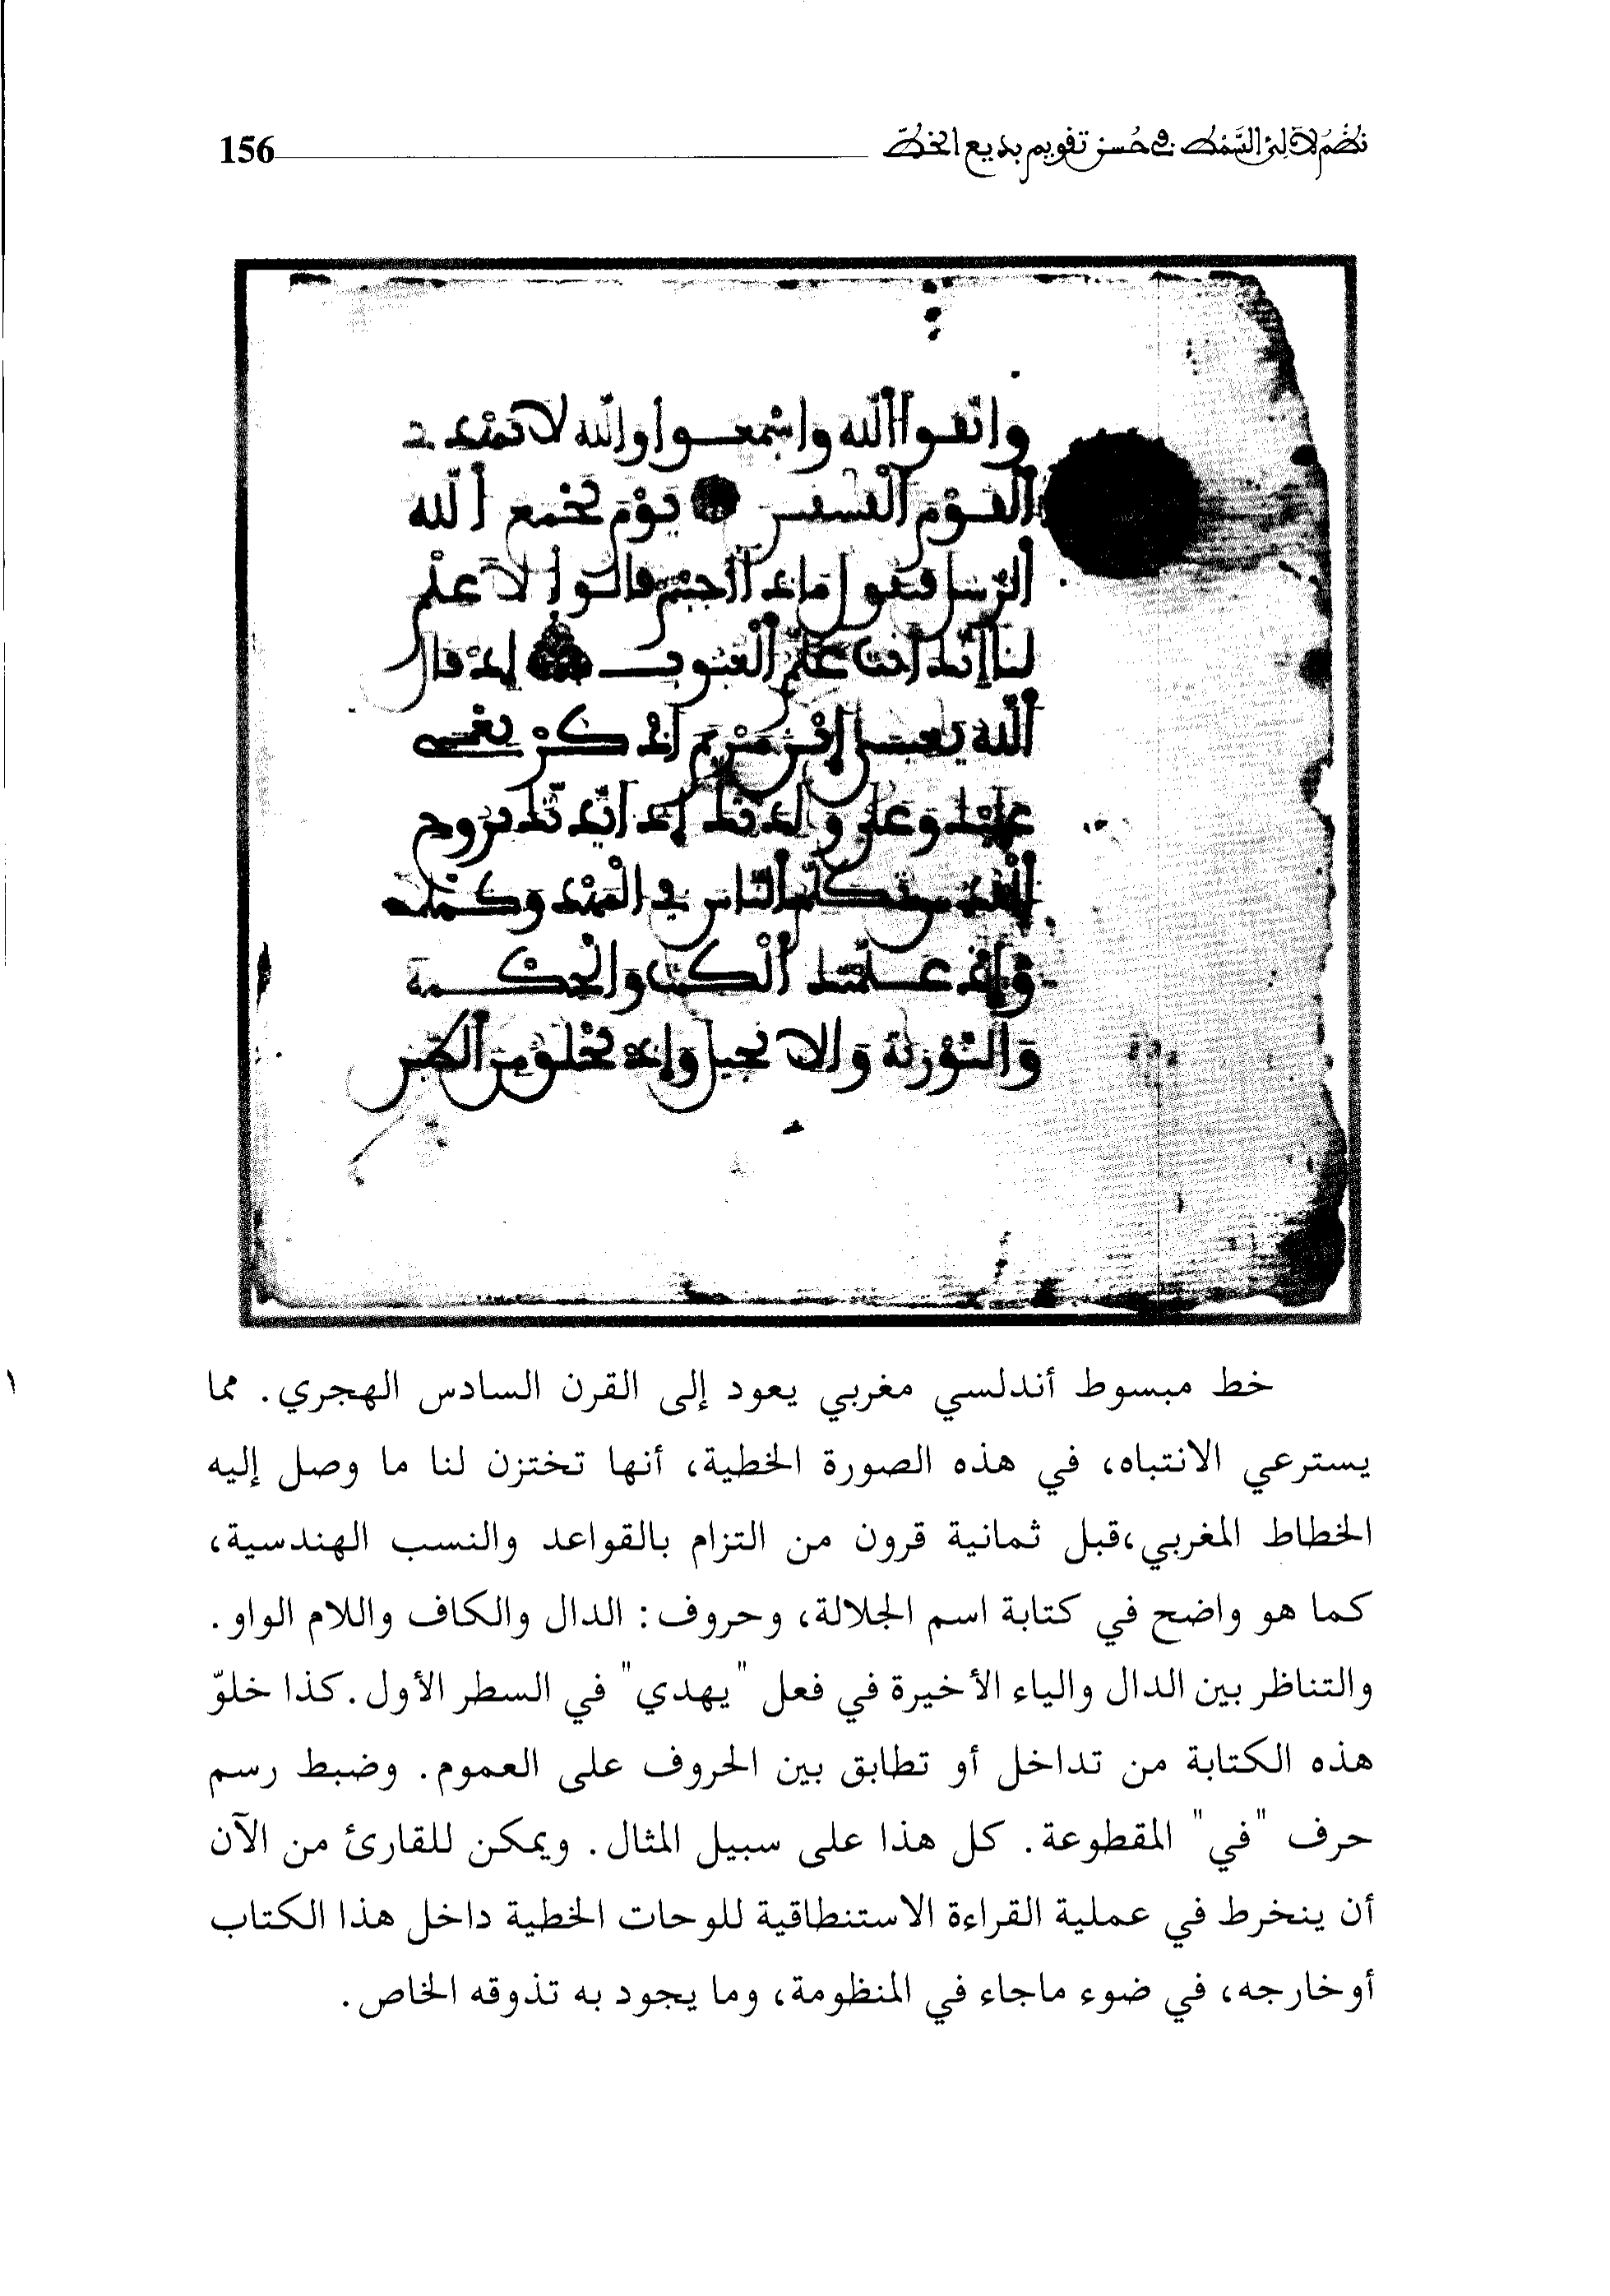 نظم لآلئ السمط في حسن تقويم بديع الخط 156
واتقوا الله واسمعوا والله لا يهدي
القوم الفسقين يوم يجمع الله
الرسل فيقول ماذا أجبتم قالوا لا علم
لنا إنك أنت علم الغيوب إذ قال
الله يعيسى ابن مريم اذكر نعمتي
عليك وعلى ولدتك إذ أيدتك بروح
القدس تكلم الناس في المهد وكهلا
وإذ علمتك الكتب والحكمة
والتورية والإنجيل وإذ تخلق من الطين
خط مبسوط أندلسي مغربي يعود إلى القرن السادس الهجري. مما
يسترعي الانتباه، في هذه الصورة الخطية، أنها تختزن لنا ما وصل إليه
الخطاط المغربي،قبل ثمانية قرون من التزام بالقواعد والنسب الهندسية،
كما هو واضح في كتابة اسم الجلالة، وحروف: الدال والكاف واللام الواو.
والتناظر بين الدال والياء الأخيرة في فعل "يهدي" في السطر الأول.كذا خلوّ
هذه الكتابة من تداخل أو تطابق بين الحروف على العموم. وضبط رسم
حرف "في" المقطوعة. كل هذا على سبيل المثال. ويمكن للقارئ من الآن
أن ينخرط في عملية القراءة الاستنطاقية للوحات الخطية داخل هذا الكتاب
أوخارجه، في ضوء ماجاء في المنظومة، وما يجود به تذوقه الخاص.